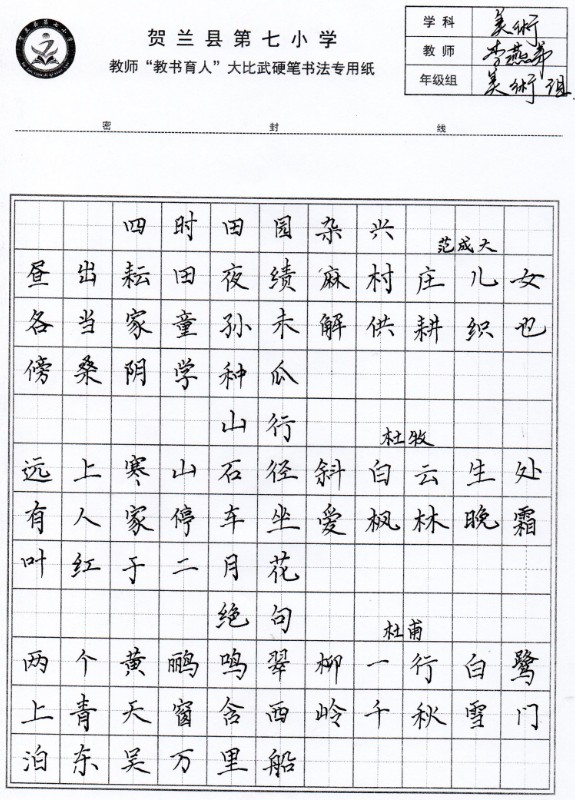 贺兰县第七小学
教师“教书育人”大比武硬笔书法专用纸
学科 美術
教师 李燕弟
年级组 美術组
密 封 线
四时田园杂兴
范成大
昼出耘田夜绩麻村庄儿女
各当家童孙未解供耕织也
傍桑阴学种瓜
山行
杜牧
远上寒山石径斜白云生处
有人家停车坐爱枫林晚霜
叶红于二月花
绝句
杜甫
两个黄鹂鸣翠柳一行白鹭
上青天窗含西岭千秋雪门
泊东吴万里船